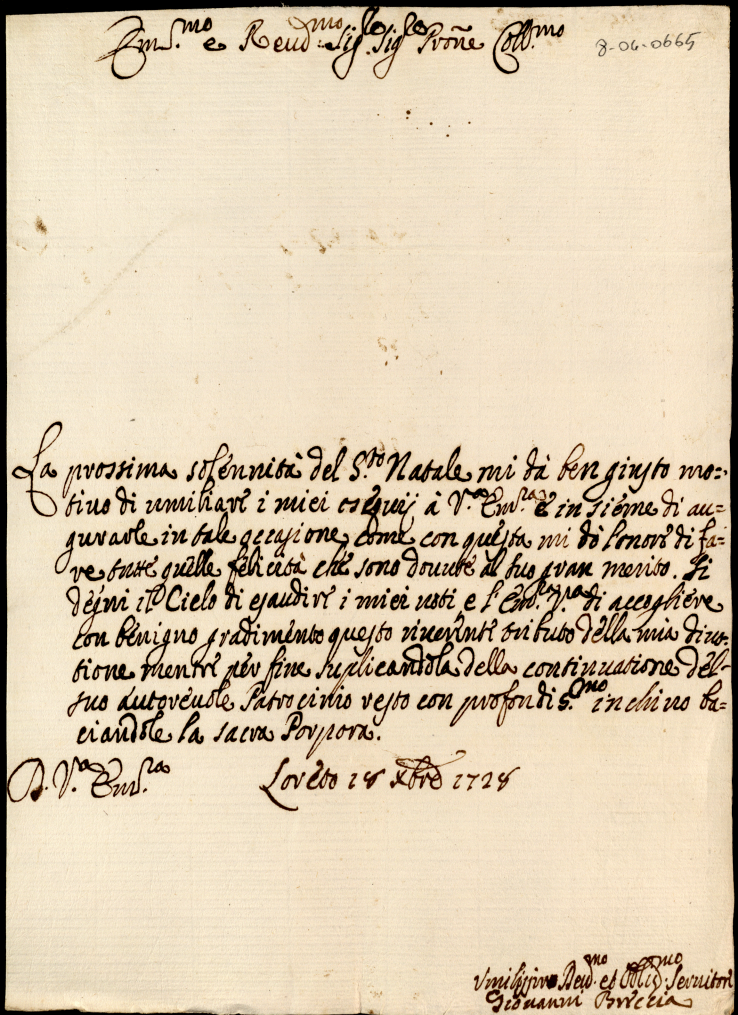 Em.mo e Reud.mo Sig.le Sig.le Proñe Coll.mo
8-06-0665
La prossima solennità del S.to Natale mi dà ben giusto mo=
tiuo di umiliare i miei ossequij à V.a Em.za e insieme di au=
gurarle in tale occasione, come con questa mi dò l'onore di fa=
re tutte quelle felicità che sono douute al suo gran merito. Si
degni il Cielo di esaudire i miei uoti, e l'Em.za V.ra di accogliere
con benigno gradimento questo riuerente tributo della mia diuo=
tione mentre per fine suplicandola della continuatione del
suo autoreuole Patrocinio resto con profondis.mo inchino ba=
ciandole la sacra Porpora.
D. V.a Em.za
Loreto 18 Xbre 1728
Vmilissimo Deud.mo et Oblig.mo Seruitore
Giouanni Breccia